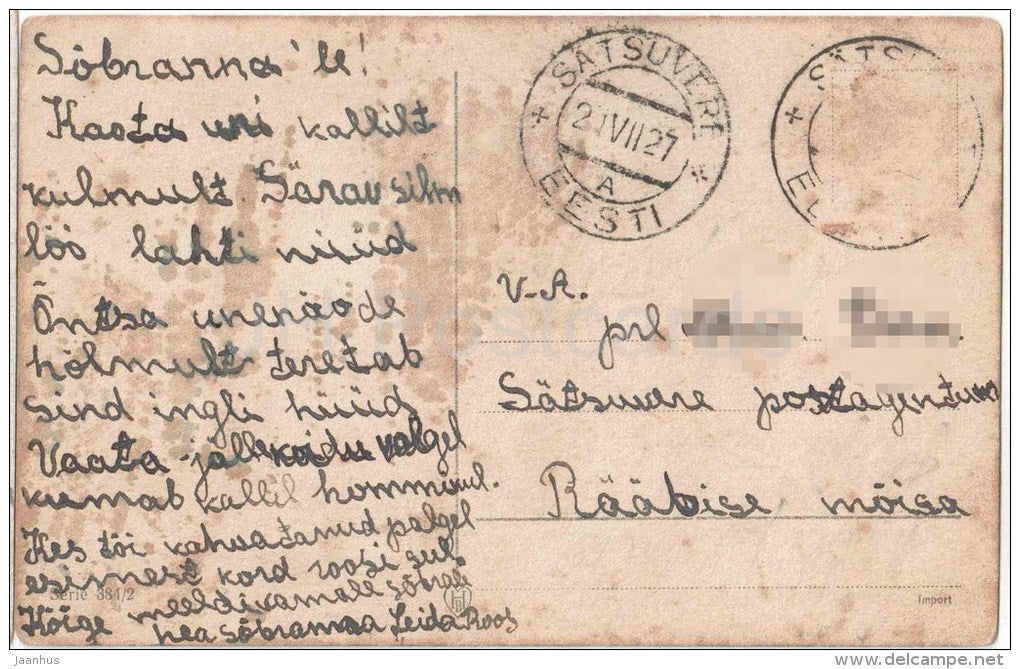 Sõbranna'le!
Kaota uni kallilt
kulmult Särav silm
löö lahti nüüd
Õntsa unenäode
hõlmult teretab
sind ingli hüüd
Vaata jälle koidu valgel
kumab kallil hommikul.
Kes tõi kahvatanud palgel
esimest kord roosi sul
meeldivamalt sõbrali
Kõige hea sõbranna Leida Roos
Serie 384/2
SÄTSUVERE
2 IVII 27
A
EESTI
SÄTS
E
V-A.
prl
Sätsuvere postagentuur
Rääbise mõisa
Import
jaanhus
www.delcampe.net